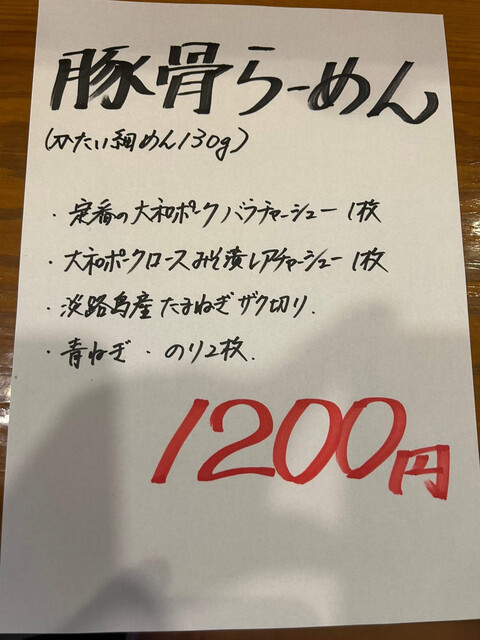 豚骨らーめん
(かたい細めん130g)
・定番の大和ポークバラチャーシュー1枚
・大和ポークロースみそ漬レアチャーシュー1枚
・淡路島産たまねぎザク切り.
・青ねぎ ・のり2枚.
1200円